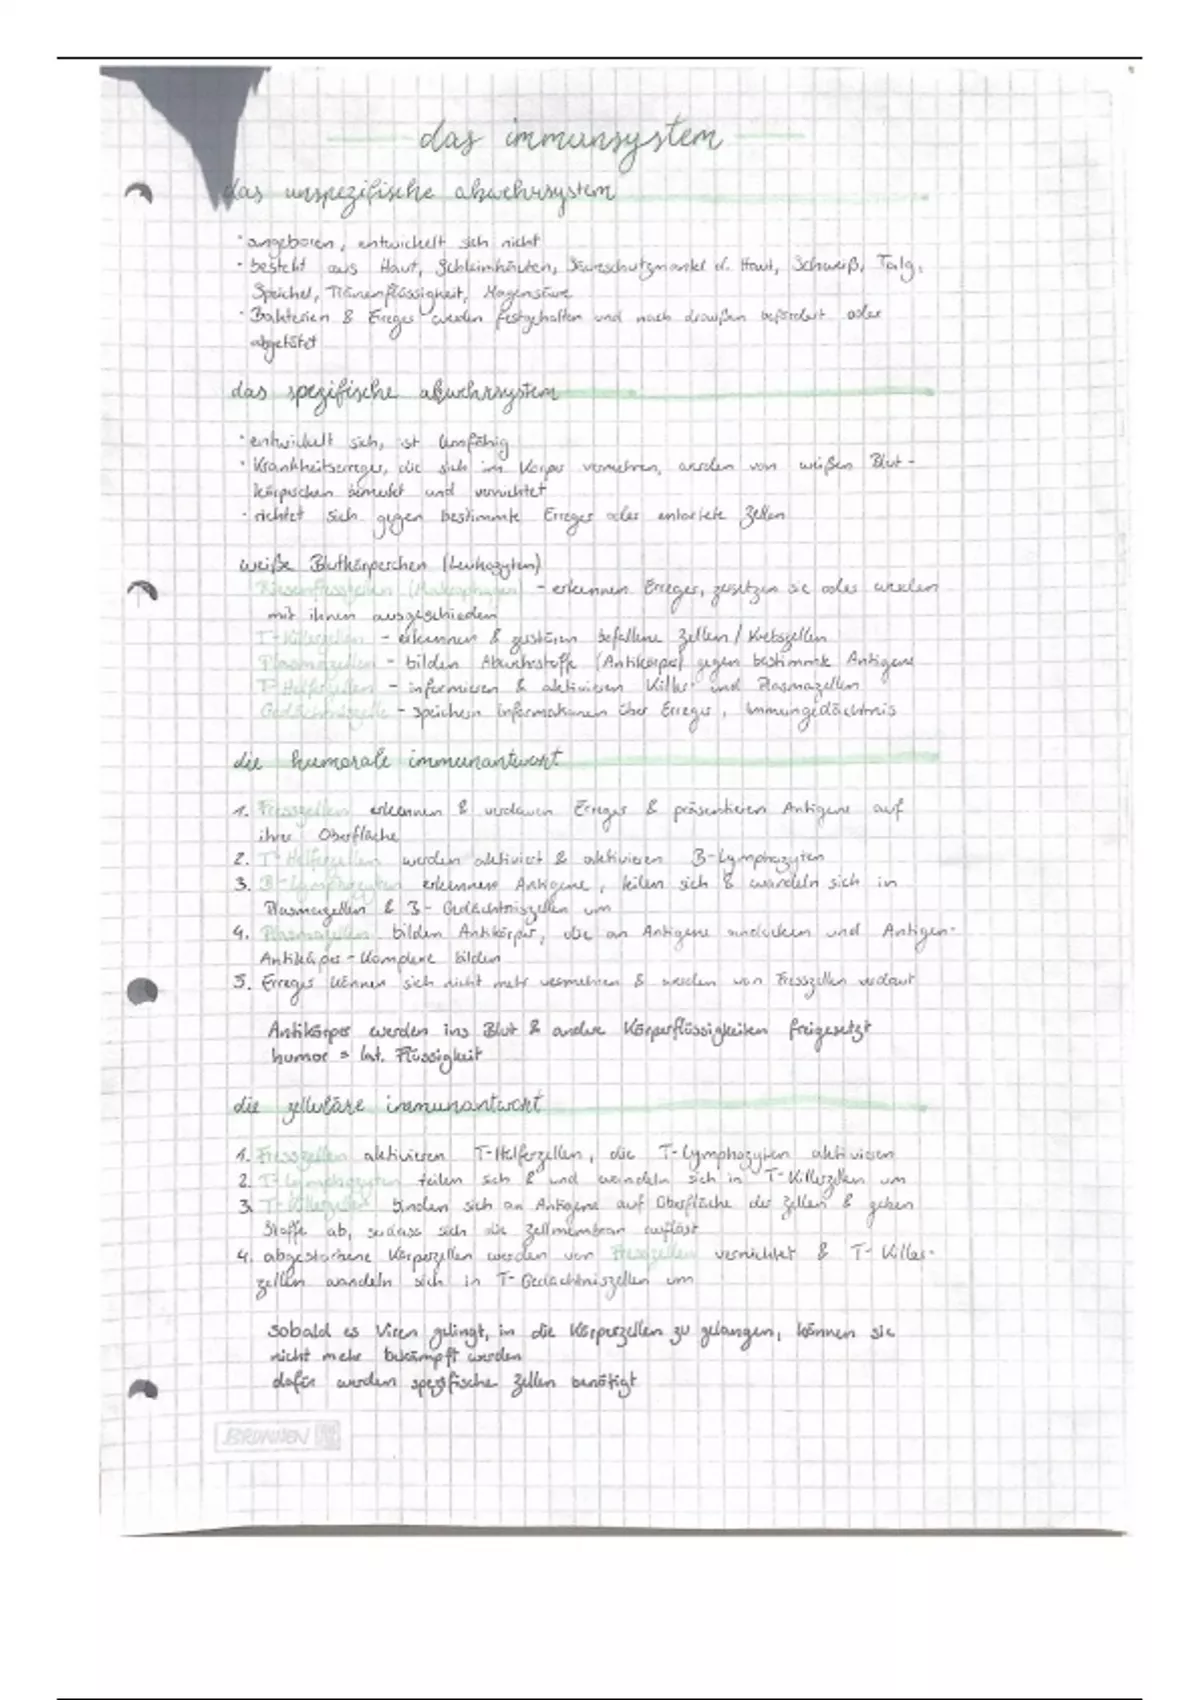 das immunsystem
das unspezifische abwehrsystem
· angeboren, entwickelt sich nicht
· besteht aus Haut, Schleimhäuten, Säureschutzmantel d. Haut, Schweiß, Talg,
Speichel, Tränenflüssigkeit, Magensäure
· Bakterien & Erreger werden festgehalten und nach draußen befördert oder
abgetötet
das spezifische abwehrsystem
· entwickelt sich, ist lernfähig
· Krankheitserreger, die sich im Körper vermehren, werden von weißen Blut-
körperchen bemerkt und vernichtet
· richtet sich gegen bestimmte Erreger oder entartete Zellen
weiße Blutkörperchen (Leukozyten)
Riesenfresszellen (Makrophagen) - erkennen Erreger, zersetzen sie oder werden
mit ihnen ausgeschieden
T-Killerzellen - erkennen & zerstören befallene Zellen / Krebszellen
Plasmazellen - bilden Abwehrstoffe (Antikörper) gegen bestimmte Antigene
T-Helferzellen - informieren & aktivieren Killer- und Plasmazellen
Gedächtniszelle - speichern Informationen über Erreger, Immungedächtnis
die humorale immunantwort
1. Fresszellen erkennen & verdauen Erreger & präsentieren Antigene auf
ihrer Oberfläche
2. T-Helferzellen werden aktiviert & aktivieren B-Lymphozyten
3. B-Lymphozyten erkennen Antigene, teilen sich & wandeln sich in
Plasmazellen & B-Gedächtniszellen um
4. Plasmazellen bilden Antikörper, die an Antigene andocken und Antigen-
Antikörper-Komplexe bilden
5. Erreger können sich nicht mehr vermehren & werden von Fresszellen verdaut
Antikörper werden ins Blut & andere Körperflüssigkeiten freigesetzt
humor = lat. Flüssigkeit
die zelluläre immunantwort
1. Fresszellen aktivieren T-Helferzellen, die T-Lymphozyten aktivieren
2. T-Lymphozyten teilen sich & und wandeln sich in T-Killerzellen um
3. T-Killerzellen binden sich an Antigene auf Oberfläche der Zellen & geben
Stoffe ab, sodass sich die Zellmembran auflöst
4. abgestorbene Körperzellen werden von Fresszellen vernichtet & T-Killer-
zellen wandeln sich in T-Gedächtniszellen um
sobald es Viren gelingt, in die Körperzellen zu gelangen, können sie
nicht mehr bekämpft werden
dafür werden spezifische Zellen benötigt
BRUNNEN